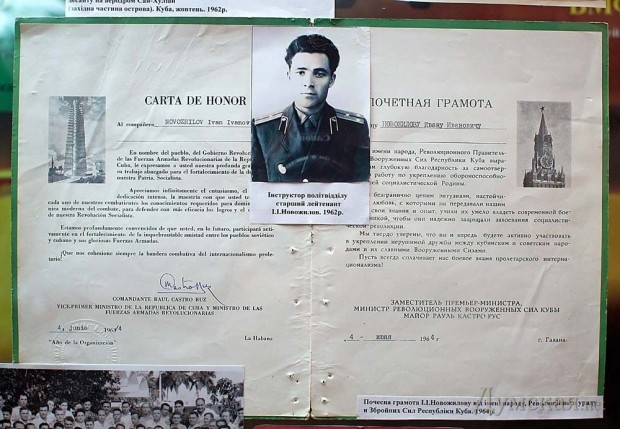 десанту на аеродром Сан-Хуліан
(західна частина острова). Куба, жовтень. 1962р.
CARTA DE HONOR
Al compañero NOVOZHILOV Ivan Ivanov
En nombre del pueblo, del Gobierno Revoluc
de las Fuerzas Armadas Revolucionarias de la Rep
Cuba, le expresamos a usted nuestra profunda grati
su trabajo abnegado para el fortalecimiento de la de
nuestra Patria Socialista.
Apreciamos infinitamente el entusiasmo, el
dedicación intensa, la maestría con que usted tra
cada uno de nuestros combatientes los conocimientos requeridos para domin
nica moderna del combate, para defender con más eficacia los logros y el
de nuestra Revolución Socialista.
Estamos profundamente convencidos de que usted, en lo futuro, participará activa-
mente en el fortalecimiento de la inquebrantable amistad entre los pueblos soviético
y cubano y sus gloriosas Fuerzas Armadas.
¡Que nos cohesione siempre la bandera combativa del internacionalismo prole-
tario!
COMANDANTE RAUL CASTRO RUZ
VICEPRIMER MINISTRO DE LA REPUBLICA DE CUBA Y MINISTRO DE LAS
FUERZAS ARMADAS REVOLUCIONARIAS
4, junio 1964
La Habana
"Año de la Organización"
Інструктор політвідділу
старший лейтенант
І.І.Новожилов. 1962р.
ПОЧЕТНАЯ ГРАМОТА
НОВОЖИЛОВУ Ивану Ивановичу
имени народа, Революционного Правитель-
Вооруженных Сил Республики Куба выра-
глубокую благодарность за самоотвер-
работу по укреплению обороноспособно-
социалистической Родины.
безгранично ценим энтузиазм, настойчи-
любовь, с которыми он передавали нашим
свои знания и опыт, учили их умело владеть современной бое-
техникой, чтобы они надежно защищали завоевания социалисти-
ческой революции.
Мы твердо уверены, что вы и впредь будете активно участвовать
в укреплении нерушимой дружбы между кубинским и советским народа-
ми и их славными Вооруженными Силами.
Пусть всегда сплачивает нас боевое знамя пролетарского интерна-
ционализма!
ЗАМЕСТИТЕЛЬ ПРЕМЬЕР-МИНИСТРА,
МИНИСТР РЕВОЛЮЦИОННЫХ ВООРУЖЕННЫХ СИЛ КУБЫ
МАЙОР РАУЛЬ КАСТРО РУС
4 - июня 1964 г.
г. Гавана.
Почесна грамота І.І.Новожилову від імені народу, Революційного уряду
и Збройних Сил Республіки Куба. 1964р.
Думская